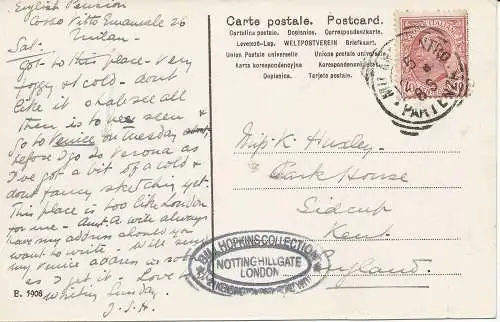 English Pension
Corso Vitto Emanuele 26
Milan.
Sat.
got to this place - very
foggy & cold - dont
like it shall see all
there is to be seen &
go to Venice on Tuesday
before I go to Verona as
I've got a bit of a cold &
dont fancy sketching yet.
This place is too like London
for me - Aunt A. will always
have my address should you
want to write - Will send
my Venice address as soon
as I get it. Love
writing Sunday.
J.S.H.
B. 1906
Carte postale. Postcard.
Cartolina postale. Dopisnice. Correspondenzkarte.
Levelező-Lap. WELTPOSTVEREIN Briefkaart.
Union Postale universelle. Unione Postale universale.
Karta korespondencyjna Korespondenzkarte.
Dopisnica. Tarjeta postal.
MILANO
PARTENZA
Miss K. Huxley
Park House
Sidcup
Kent.
England.
HOPKINS COLLECTION
NOTTING HILL GATE
LONDON